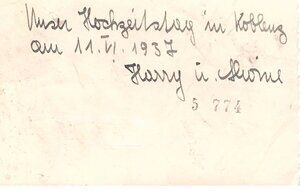 Unser Hochzeitstag in Koblenz
am 11. VI. 1937
Harry u.
5 774